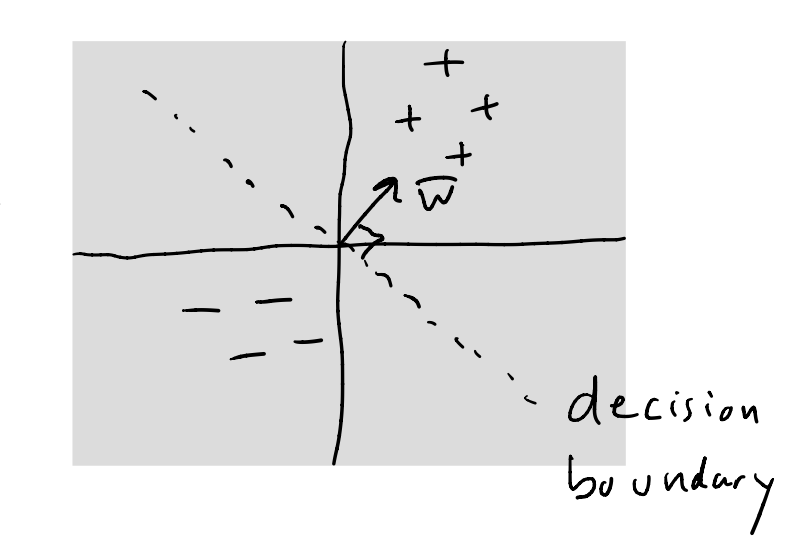 +
+ +
+
w̅
decision
boundary